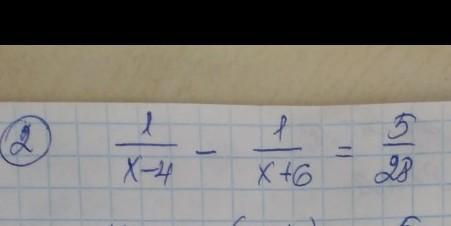 2 1/(x-4) - 1/(x+6) = 5/28